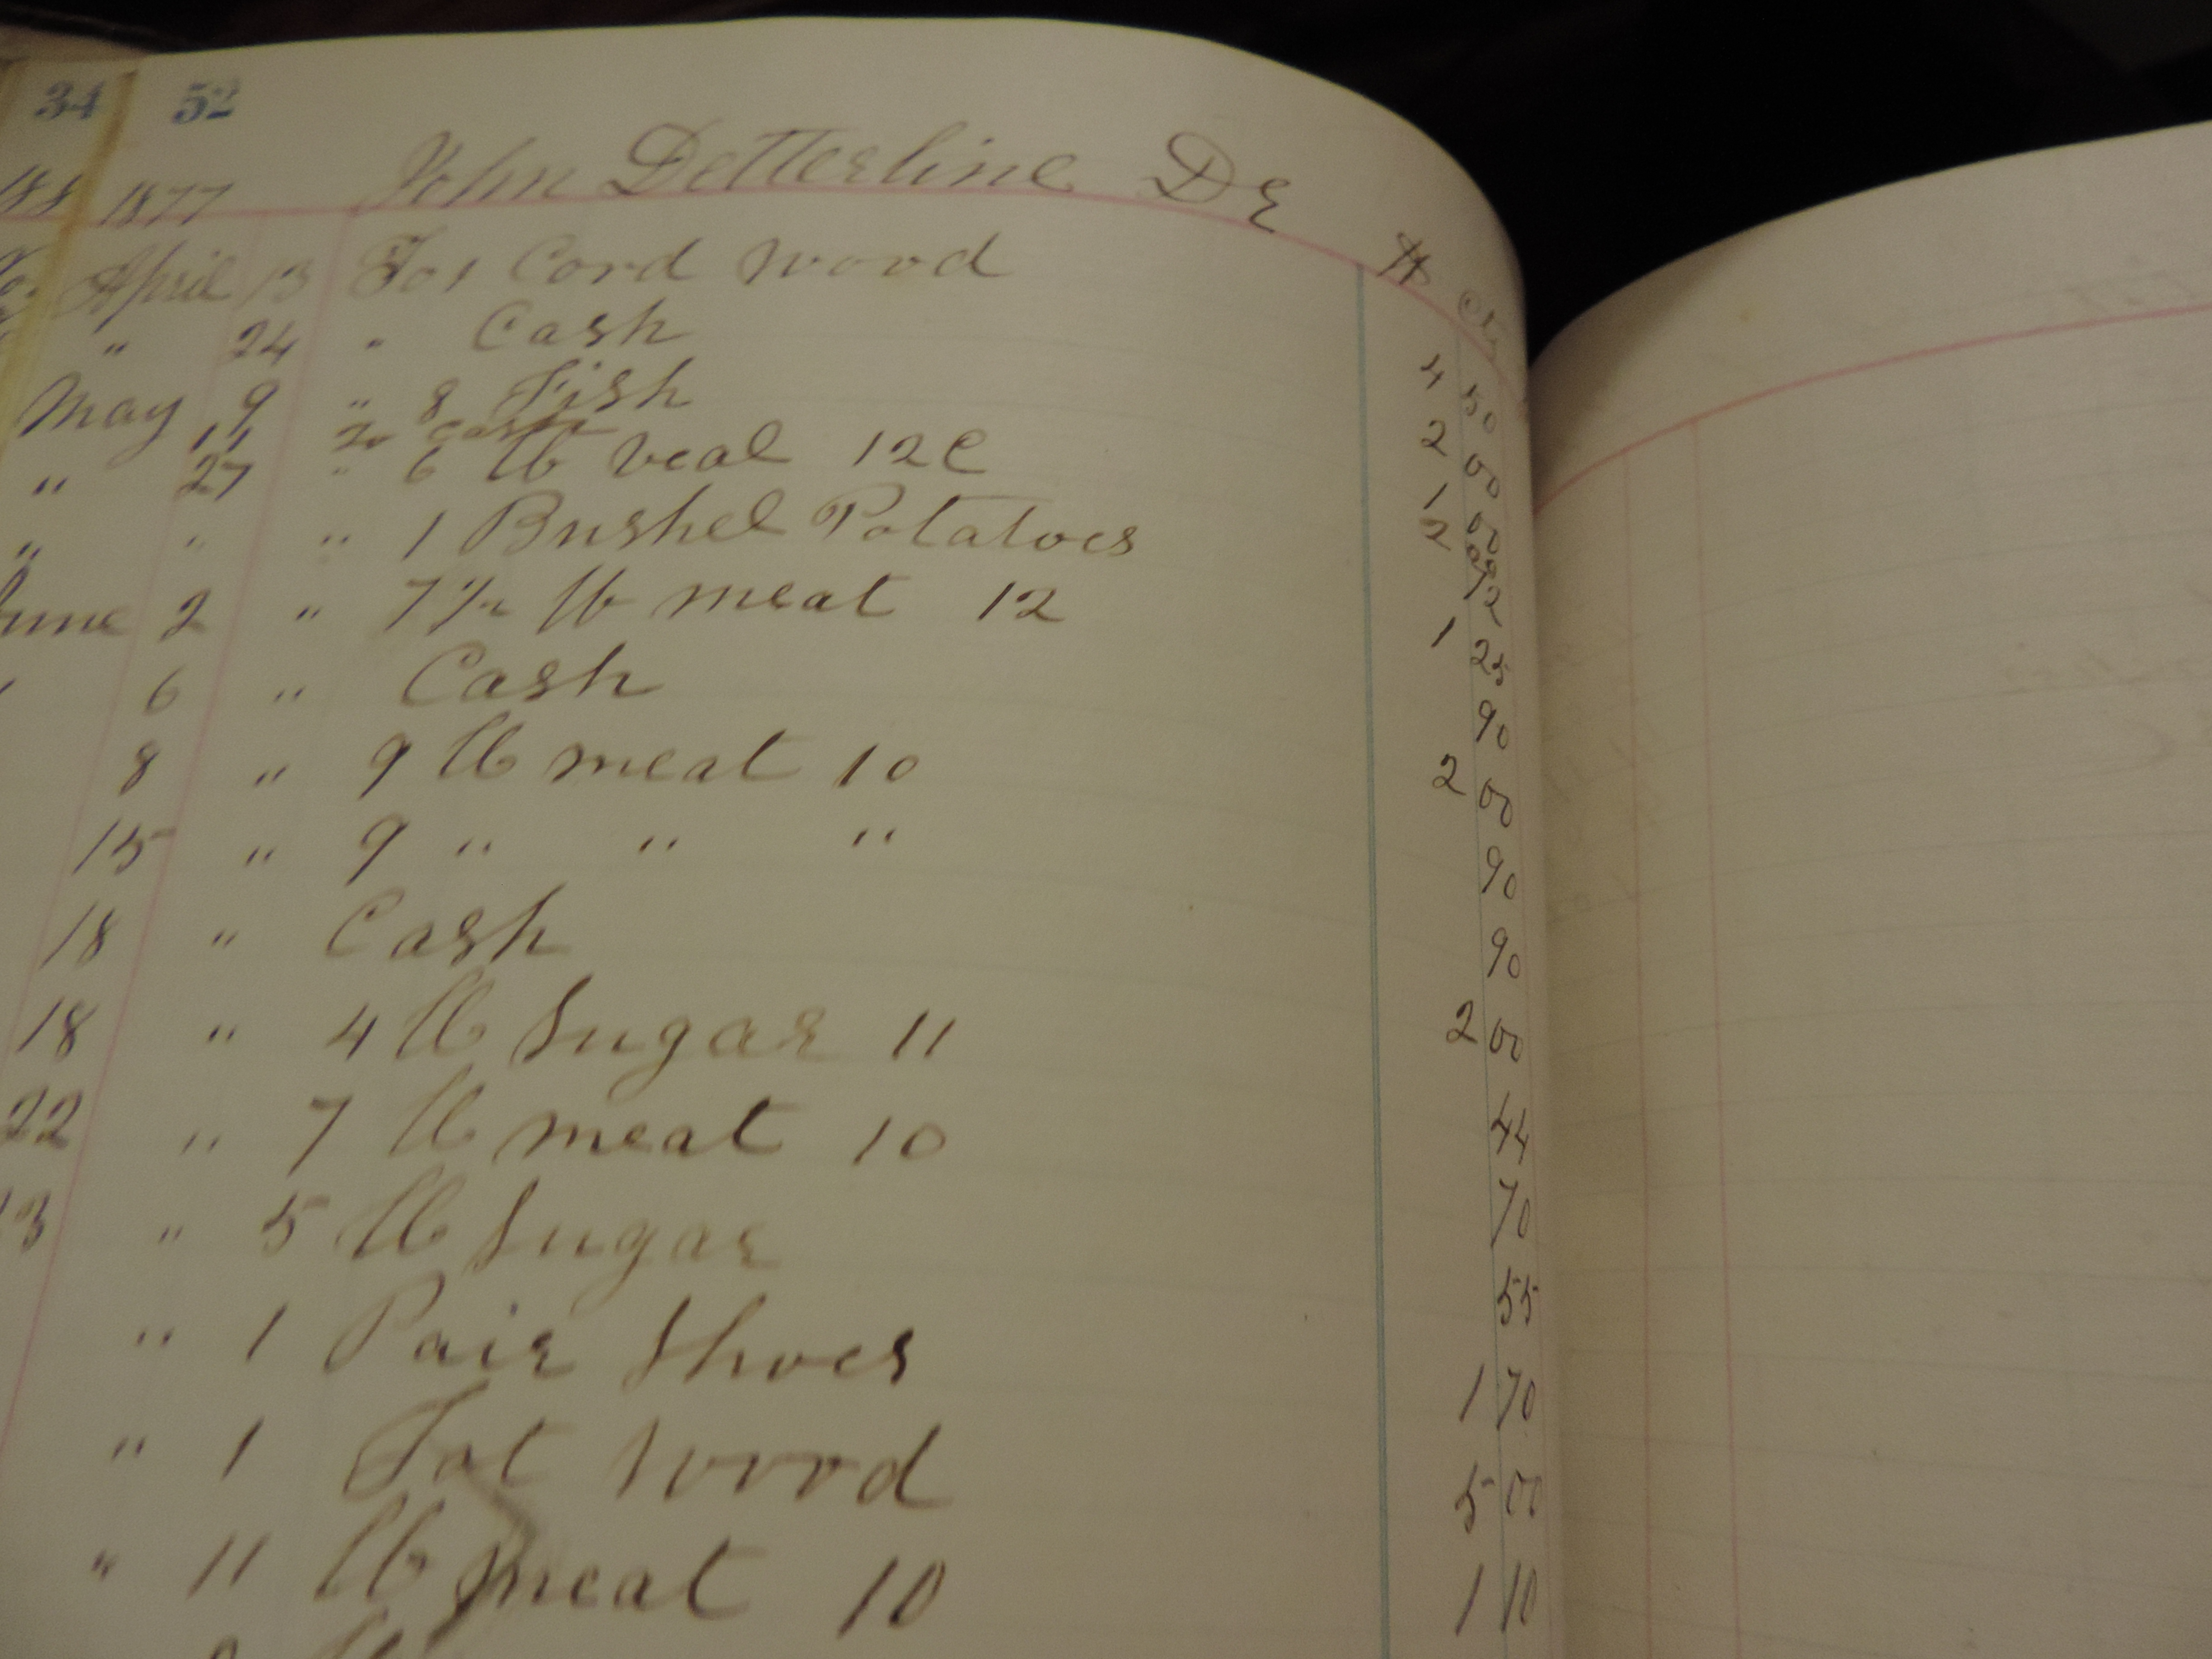 34 52
188 1877 John Detterline Dr
$ Cts
April 13 To 1 Cord wood 4 50
" 24 " Cash 2 00
May 9 " 8 Fish 1 00
11 To Cash 2 00
" 27 " 6 lb veal 12 C 72
" " " 1 Bushel Potatoes 1 25
June 2 " 7 1/2 lb meat 12 90
6 " Cash 2 00
8 " 9 lb meat 10 90
15 " 9 " " " 90
18 " Cash 2 00
18 " 4 lb Sugar 11 44
22 " 7 lb meat 10 70
" 5 lb Sugar 55
" 1 Pair Shoes 1 70
" 1 Lot Wood 5 00
" 11 lb meat 10 1 10